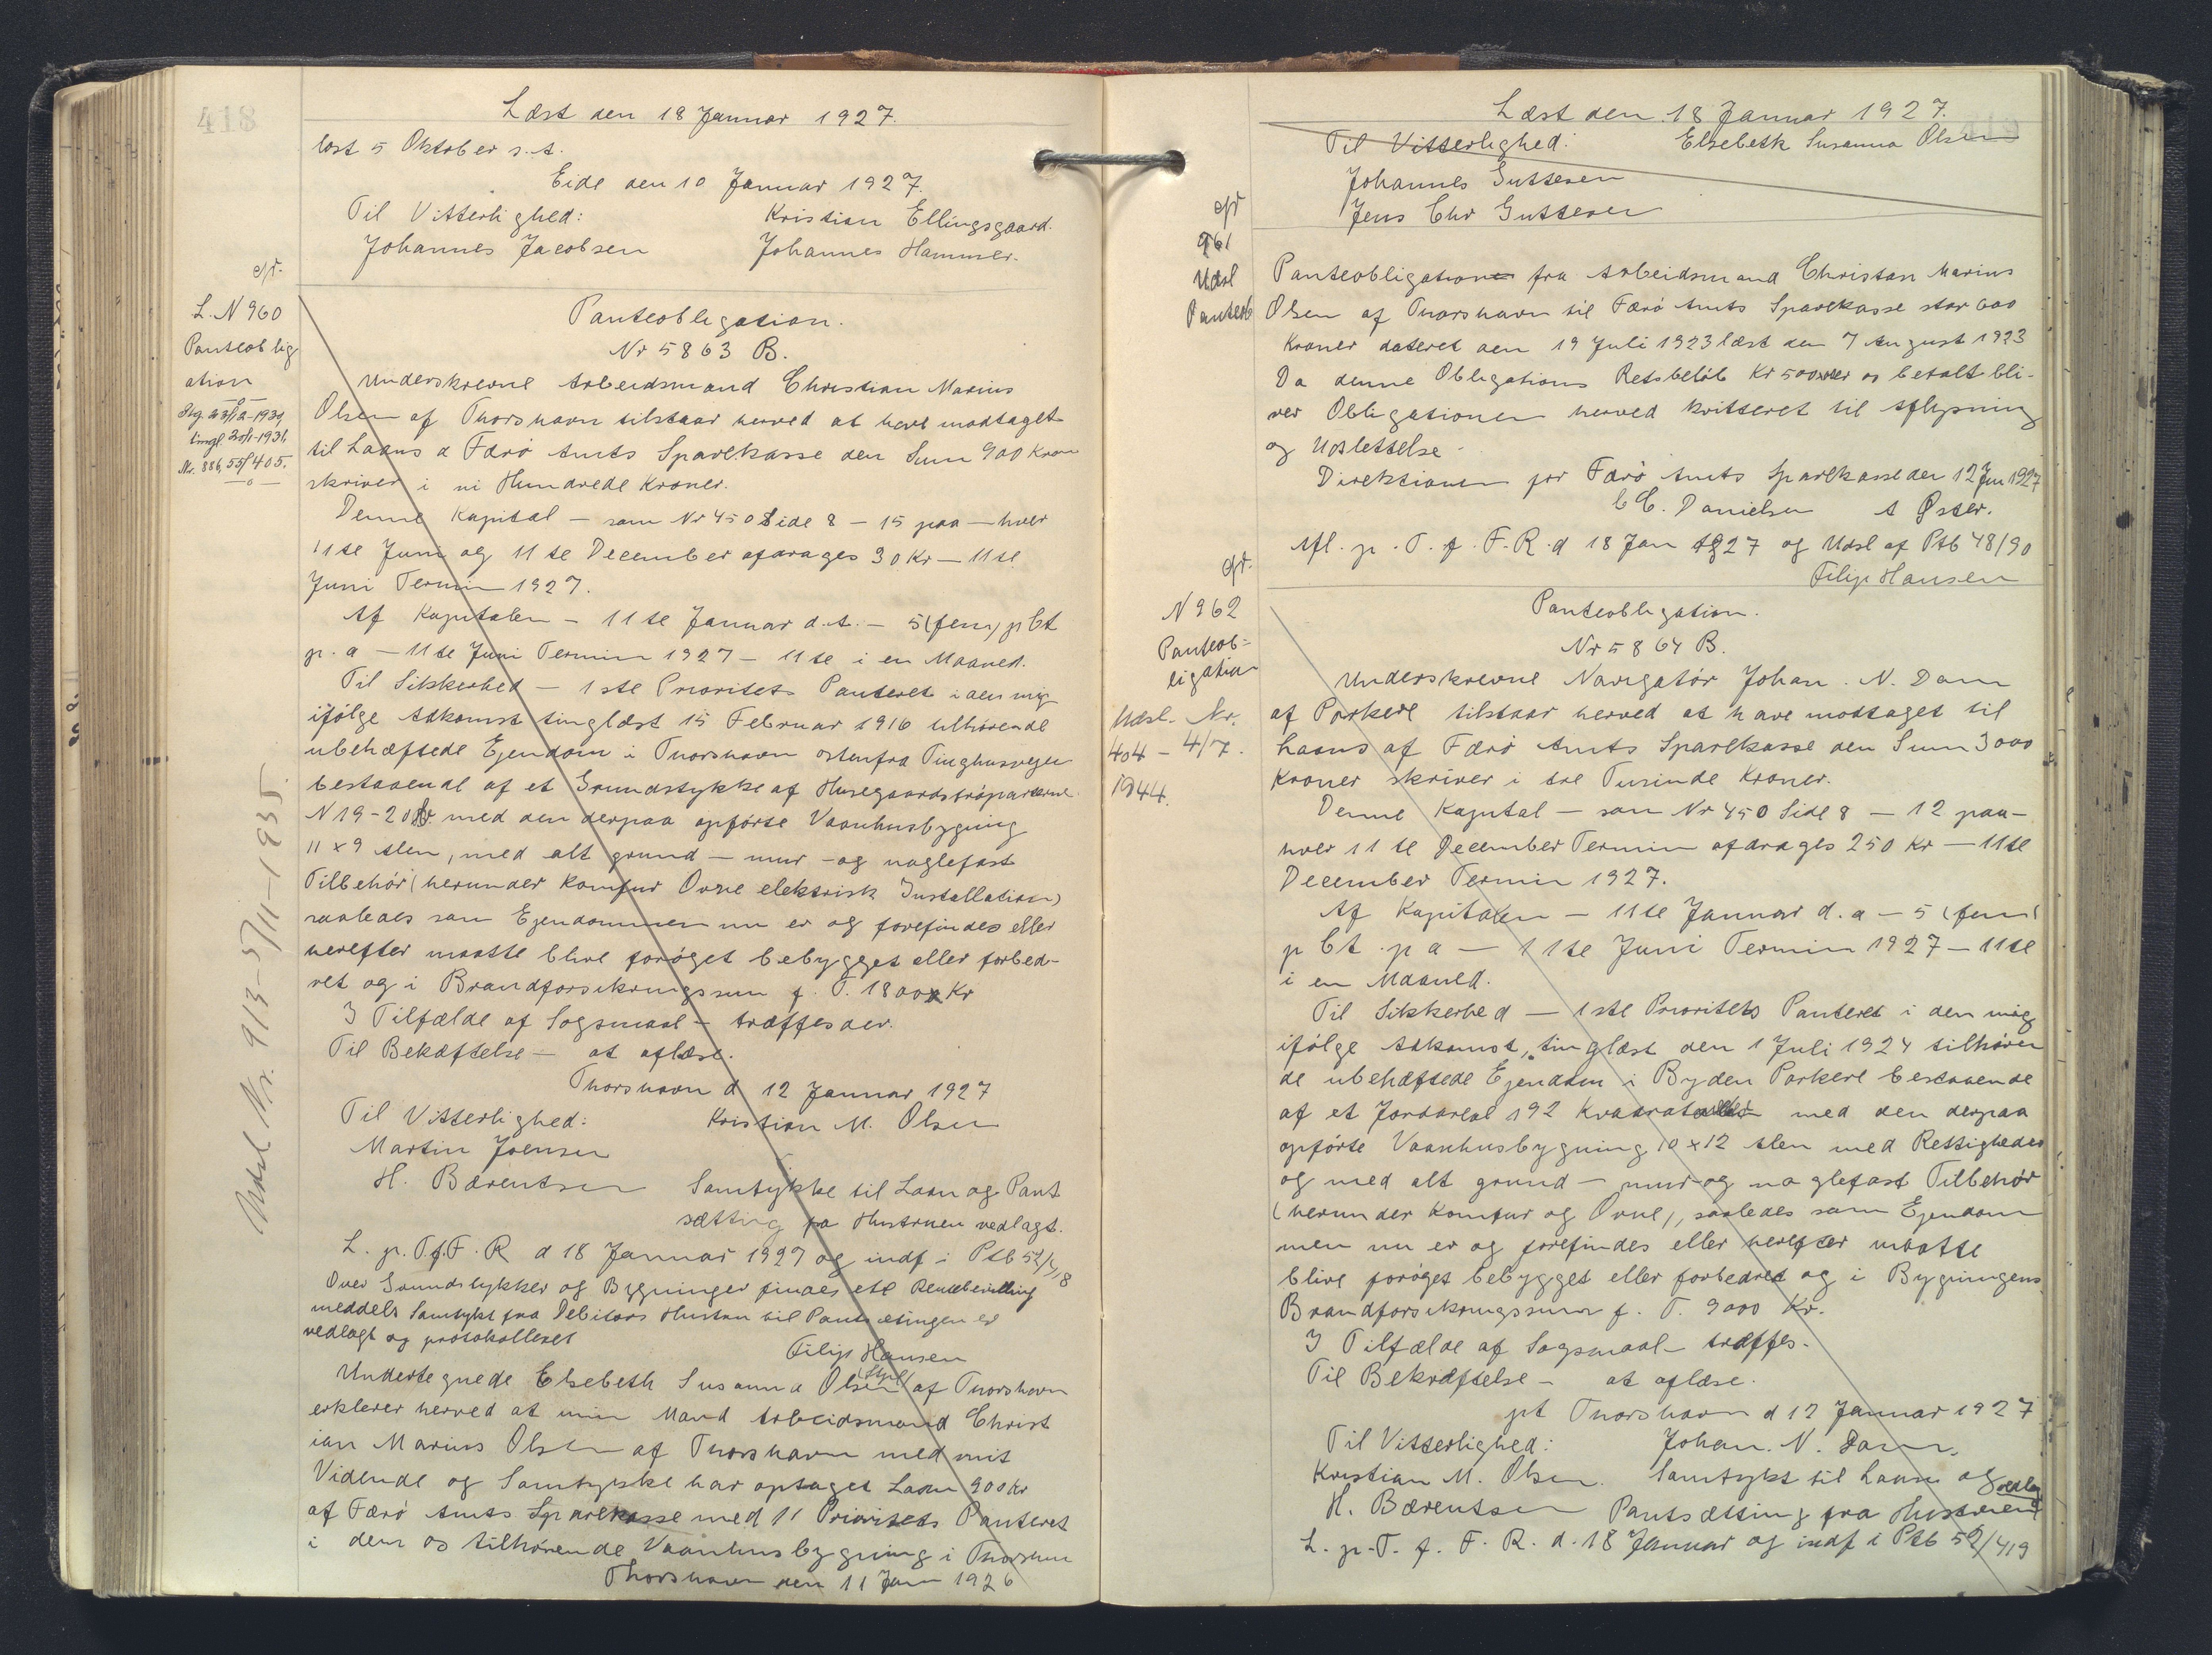 418
Læst den 18 Januar 1927.
løst 5 Oktober s.A.
Eide den 10 Januar 1927.
Til Vitterlighed: Kristian Ellingsgaard.
Johannes Jacobsen Johannes Hammer.
L. N 960
Panteoblig
ation
tingl. 20/1-1931.
Nr. 886, 55/405.
Udsl Nr. 913-5/11-1935.
Panteobligation.
Nr 5863 B.
Underskrevne Arbeidsmand Christian Marius
Olsen af Thorshavn tilstaar herved at have modtaget
til Laans a Færø Amts Sparekasse den Sum 900 Kroner
skriver i ni Hundrede Kroner.
Denne Kapital — som Nr 450 Side 8 — 15 paa — hver
11te Juni og 11te December afdrages 30 Kr — 11te
Juni Termin 1927.
Af Kapitalen — 11te Januar d.A. — 5 (fem) p Ct
p. a — 11te Juni Termin 1927 — 11te i en Maaned.
Til Sikkerhed — 1ste Prioritets Panteret i den mig
ifølge Adkomst tinglæst 15 Februar 1916 tilhørende
ubehæftede Ejendom i Thorshavn østenfra Tinghusvejen
bestaaende af et Grundstykke af Husegaardstrøparterne
N 19-20 b. med den derpaa opførte Vaanhusbygning
11 x 9 Alen, med alt grund — mur — og naglefast
Tilbehør (herunder Komfur Ovne elektrisk Installation)
saaledes som Ejendommen nu er og forefindes eller
herefter maatte blive forøget bebygget eller forbed-
ret og i Brandforsikringssum f. T. 1800 Kr
I Tilfælde af Søgsmaal — træffes der.
Til Bekræftelse — at aflæse.
Thorshavn d 12 Januar 1927
Til Vitterlighed: Kristian M. Olsen
Martin Joensen
H. Bærentsen Samtykke til Laan og Pant
sætting fra Hustruen vedlagt.
L. p. T.f.F.R d 18 Januar 1927 og indf i Ptb 52/418
Over Grundstykker og Bygninger findes ett
meddelt Samtykt fra Debitors Hustru til Pantsætingen er
vedlagt og protokolleret
Filip Hansen
Undertegnede Elsebeth Susanna Olsen af Thorshavn
erklerer herved at min Mand Arbeidsmand Christ
ian Marius Olsen af Thorshavn med mit
Vidende og Samtykke har optaget Laan 900 Kr
af Færø Amts Sparekasse med 1' Prioritets Panteret
i den os tilhørende Vaanhusbygning i Thorshavn
Thorshavn den 11 Jan 1926
Læst den 18 Januar 1927.
Til Vitterlighed: Elsebeth Susanna Olsen
Johannes Guttesen
Jens Chr Guttesen
961
Udsl
Panteob
Panteobligation fra Arbeidsmand Christan Marius
Olsen af Thorshavn til Færø Amts Sparekasse stor 600
Kroner dateret den 19 Juli 1923 læst den 7 August 1923
Da denne Obligations Restbeløb Kr 500 er os betalt bli-
ver Obligationen herved kvitteret til Aflysning
og Udslettelse
Direktionen for Færø Amts Sparekasse den 12 Jan 1927
C C. Danielsen A Øster.
Afl. p. T. f. F. R. d 18 Jan 1927 og Udsl af Ptb 48/90
Filip Hansen
N 962
Panteob=
ligation
Udsl. Nr.
404 - 4/7.
1944.
Panteobligation.
Nr 5864 B.
Underskrevne Navigatør Johan. N. Dam
af Porkere tilstaar herved at have modtaget til
Laans af Færø Amts Sparekasse den Sum 3000
Kroner skriver i tre Tusinde Kroner.
Denne Kapital — som Nr 450 Side 8 — 12 paa —
hver 11te December Termin afdrages 250 Kr — 11te
December Termin 1927.
Af Kapitalen — 11te Januar d. a — 5 (fem)
p Ct p a — 11te Juni Termin 1927 — 11te
i en Maaned.
Til Sikkerhed — 1ste Prioritets Panteret i den mig
ifølge Adkomst, tinglæst den 1 Juli 1924 tilhøren
de ubehæftede Ejendom i Byden Porkere bestaaende
af et Jordareal 192 Kvadratalen med den derpaa
opførte Vaanhusbygning 10 x 12 Alen med Rettigheder
og med alt grund — mur og naglefast Tilbehør
(herunder Komfur og Ovne), saaledes som Ejendom
men nu er og forefindes eller herefter maatte
blive forøget bebygget eller forbedret og i Bygningens
Brandforsikringssum f. T. 9000 Kr.
I Tilfælde af Søgsmaal — træffes.
Til Bekræftelse — at aflæse.
pt Thorshavn d 12 Januar 1927
Til Vitterlighed: Johan. N. Dam.
Kristian M. Olsen. Samtykt til Laan og
H. Bærentsen Pantsætting fra Hustruen vedlag
L. p. T. f. F. R. d. 18 Januar og indf i Ptb 52/419